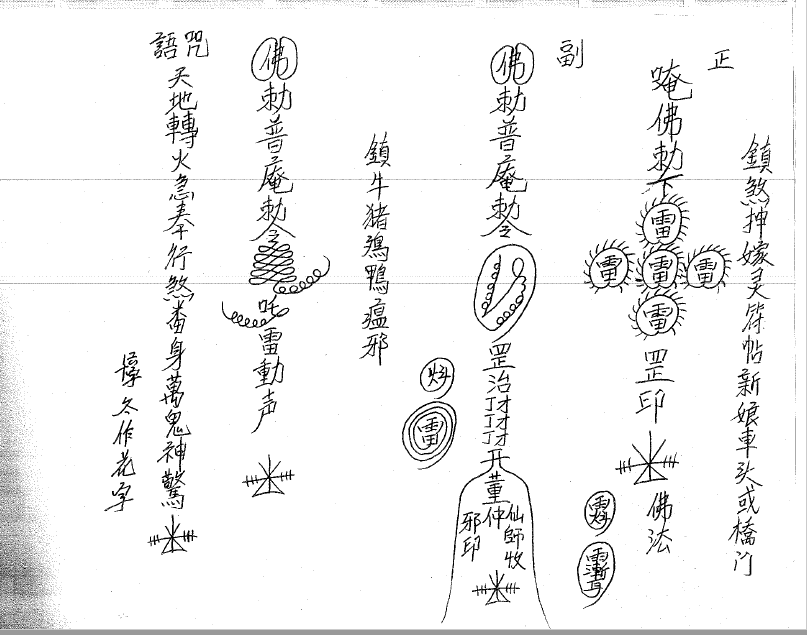 鎮煞押嫁灵符帖新娘車头或橋门
正
唵佛勅下
雷
雷雷雷
雷
罡印
佛法
副
佛勅普庵勅令
罡治
开
董仲仙師收邪印
雷
鎮牛猪鴉鴨瘟邪
佛勅普庵勅令
吒雷動声
咒語
天地轉火急奉行煞畨身萬鬼神驚
久作花字